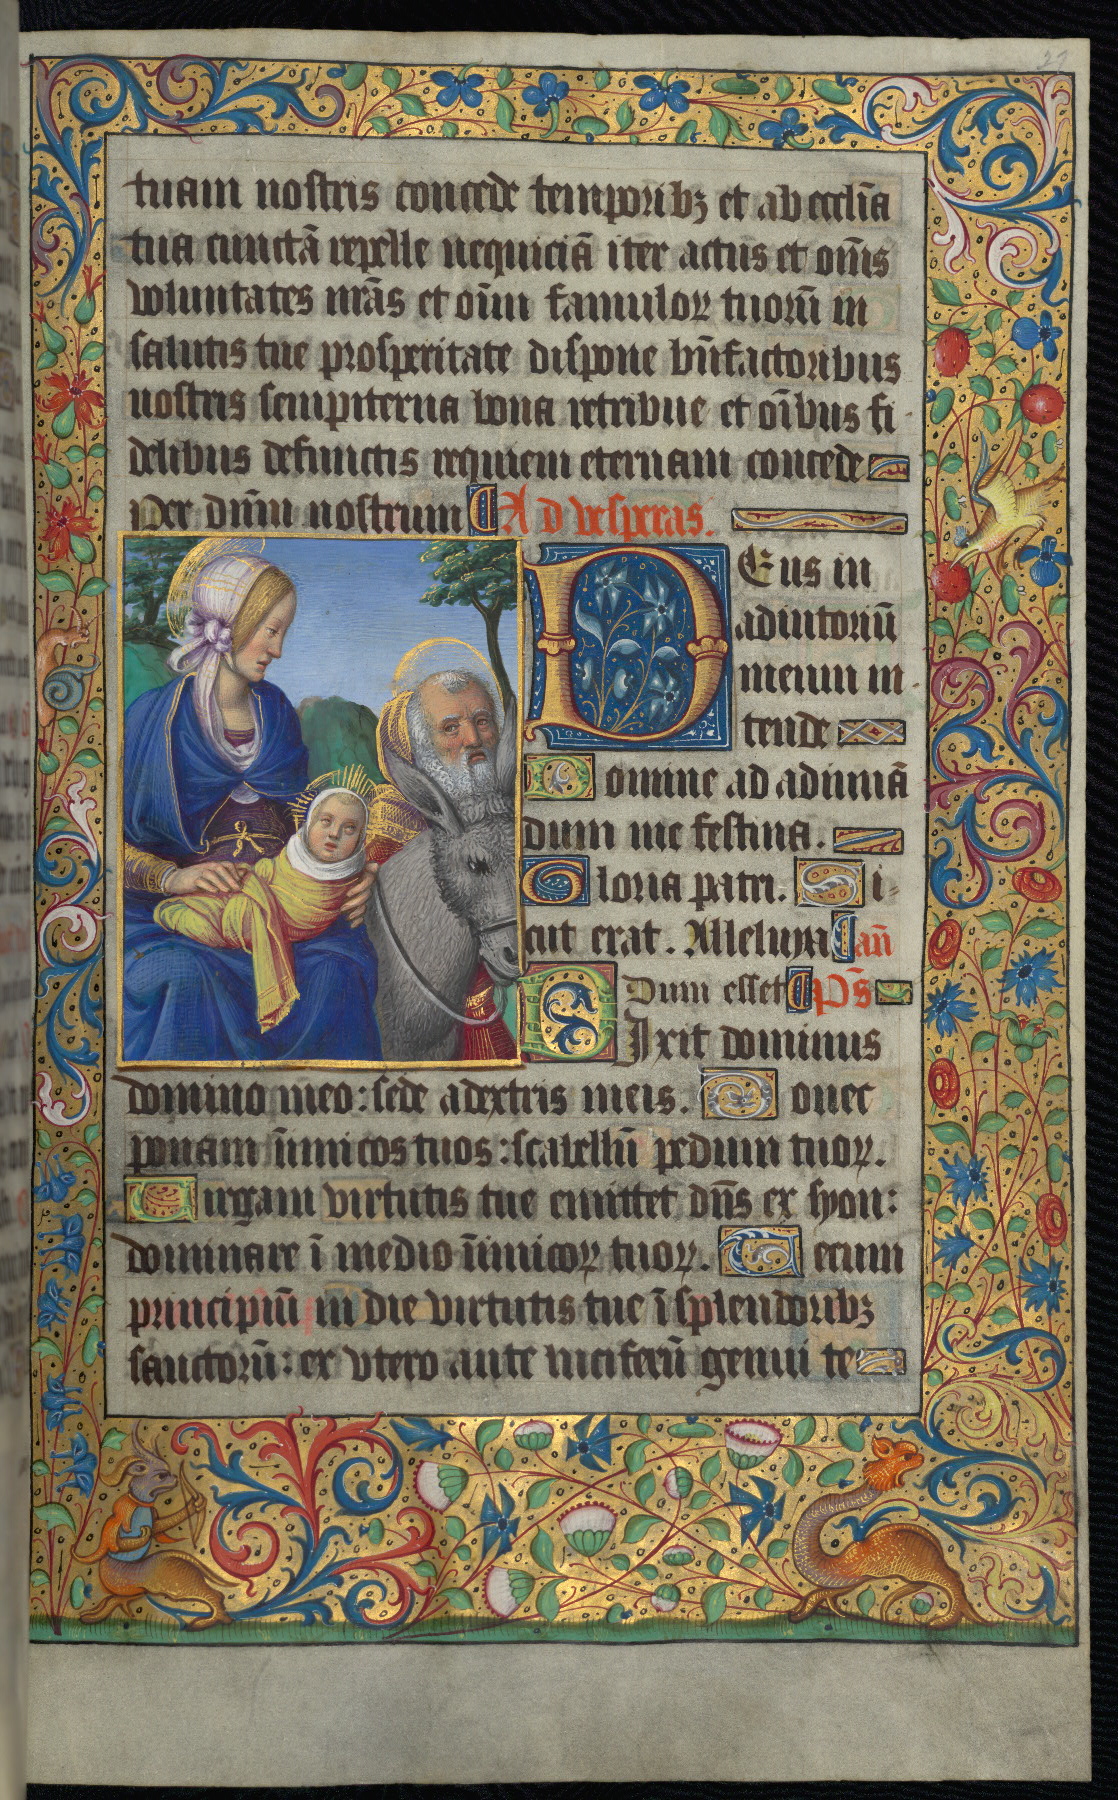 27
tuam nostris concede temporibꝫ et ab ecclīa
tua cunctā repelle nequiciā iter actus et om̄s
voluntates nr̄as et oīm famuloꝝ tuorū in
salutis tue prosperitate dispone bn̄factoribus
nostris sempiterna bona retribue et oībus fi
delibus defunctis requiem eternam concede
Per dn̄m nostrum Ad vesperas.
Deus in
adiutoriū
meum in
tende
Domine ad adiuuā
dum me festina.
Gloria patri. Si-
cut erat. Alleluya an̄
Dum esset Ps̄
Dixit dominus
domino meo: sede a dextris meis. Donec
ponam īimicos tuos: scabellū pedum tuoꝝ.
Uirgam virtutis tue emittet dn̄s ex syon:
dominare ī medio īimicoꝝ tuoꝝ. Tecum
principiū in die virtutis tue ī splendoribꝫ
sanctorū: ex vtero ante luciferū genui te